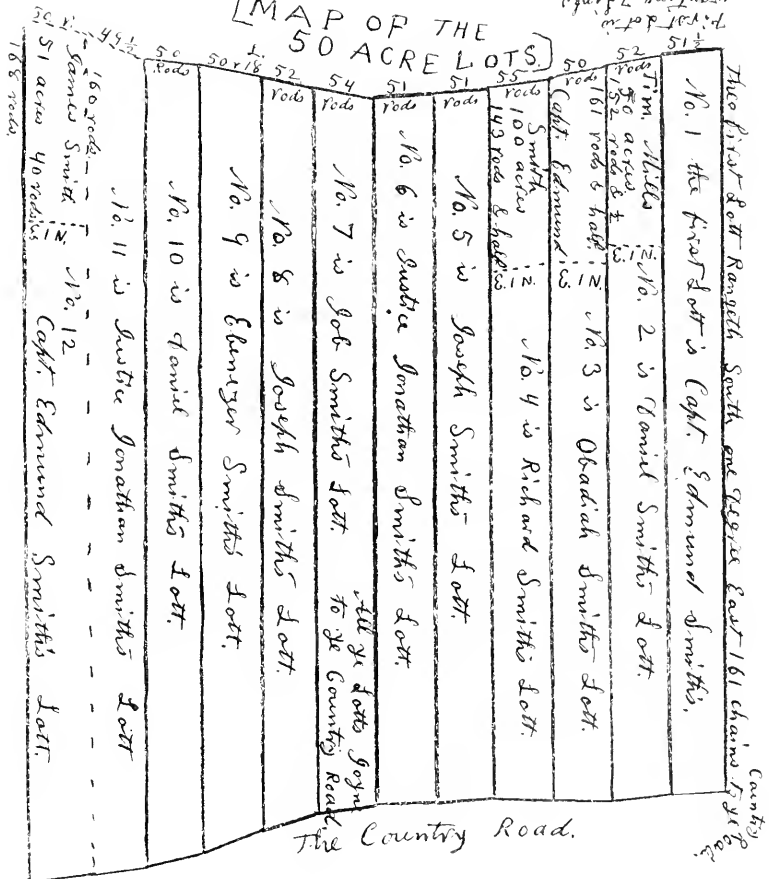 [MAP OF THE
50 ACRE LOTS.]
First Lot is
The First Lott Rangeth South one Degree East 161 chains to ye
Country Road.
51 1/2
No. 1 the first Lott is Capt. Edmund Smith's.
52
rods
Tim. Mills
50 acres
152 rods & 1/2
No. 2 is Daniel Smith's Lott.
50
rods
161 rods & half
Capt. Edmund
No. 3 is Obadiah Smith's Lott.
55
rods
Smith
100 acres
143 rods & half
No. 4 is Richard Smith's Lott.
51
rods
No. 5 is Joseph Smith's Lott.
51
rods
No. 6 is Justice Jonathan Smith's Lott.
54
rods
No. 7 is Job Smith's Lott.
All ye Lotts Joyn
to ye Country Road.
52
rods
No. 8 is Joseph Smith's Lott.
50 r 18
No. 9 is Ebenezer Smith's Lott.
50
Rods
No. 10 is Daniel Smith's Lott.
49 1/2
No. 11 is Justice Jonathan Smith's Lott
160 rods
James Smith
51 acres 40 rods
168 rods.
No. 12
Capt. Edmund Smith's Lott.
The Country Road.